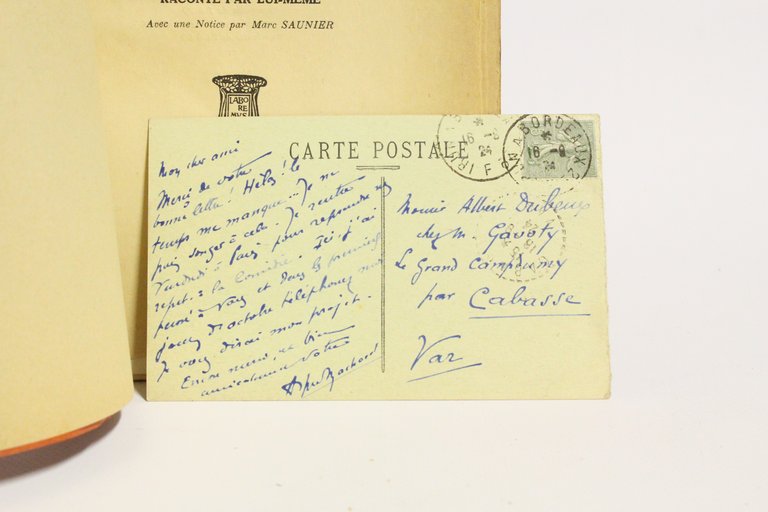 RACONTÉ PAR LUI-MÊME
Avec une Notice par Marc SAUNIER
LABO
RE
MVS
CARTE POSTALE
Mon cher ami
Merci de votre
bonne lettre ! Hélas ! le
temps me manque... Je ne
puis songer à cela. Je rentre
Vendredi à Paris pour reprendre mes
répét. à la Comédie. Ici j'ai
pensé à vous et dans les premiers
jours d'octobre téléphonez moi
Je vous dirai mon projet.
Encore merci, et bien
amicalement votre
Monsieur Albert
chez M. Gavoty
Le Grand Campdumy
par Cabasse
Var
BORDEAUX
16 - 9
24
16 - 9
24